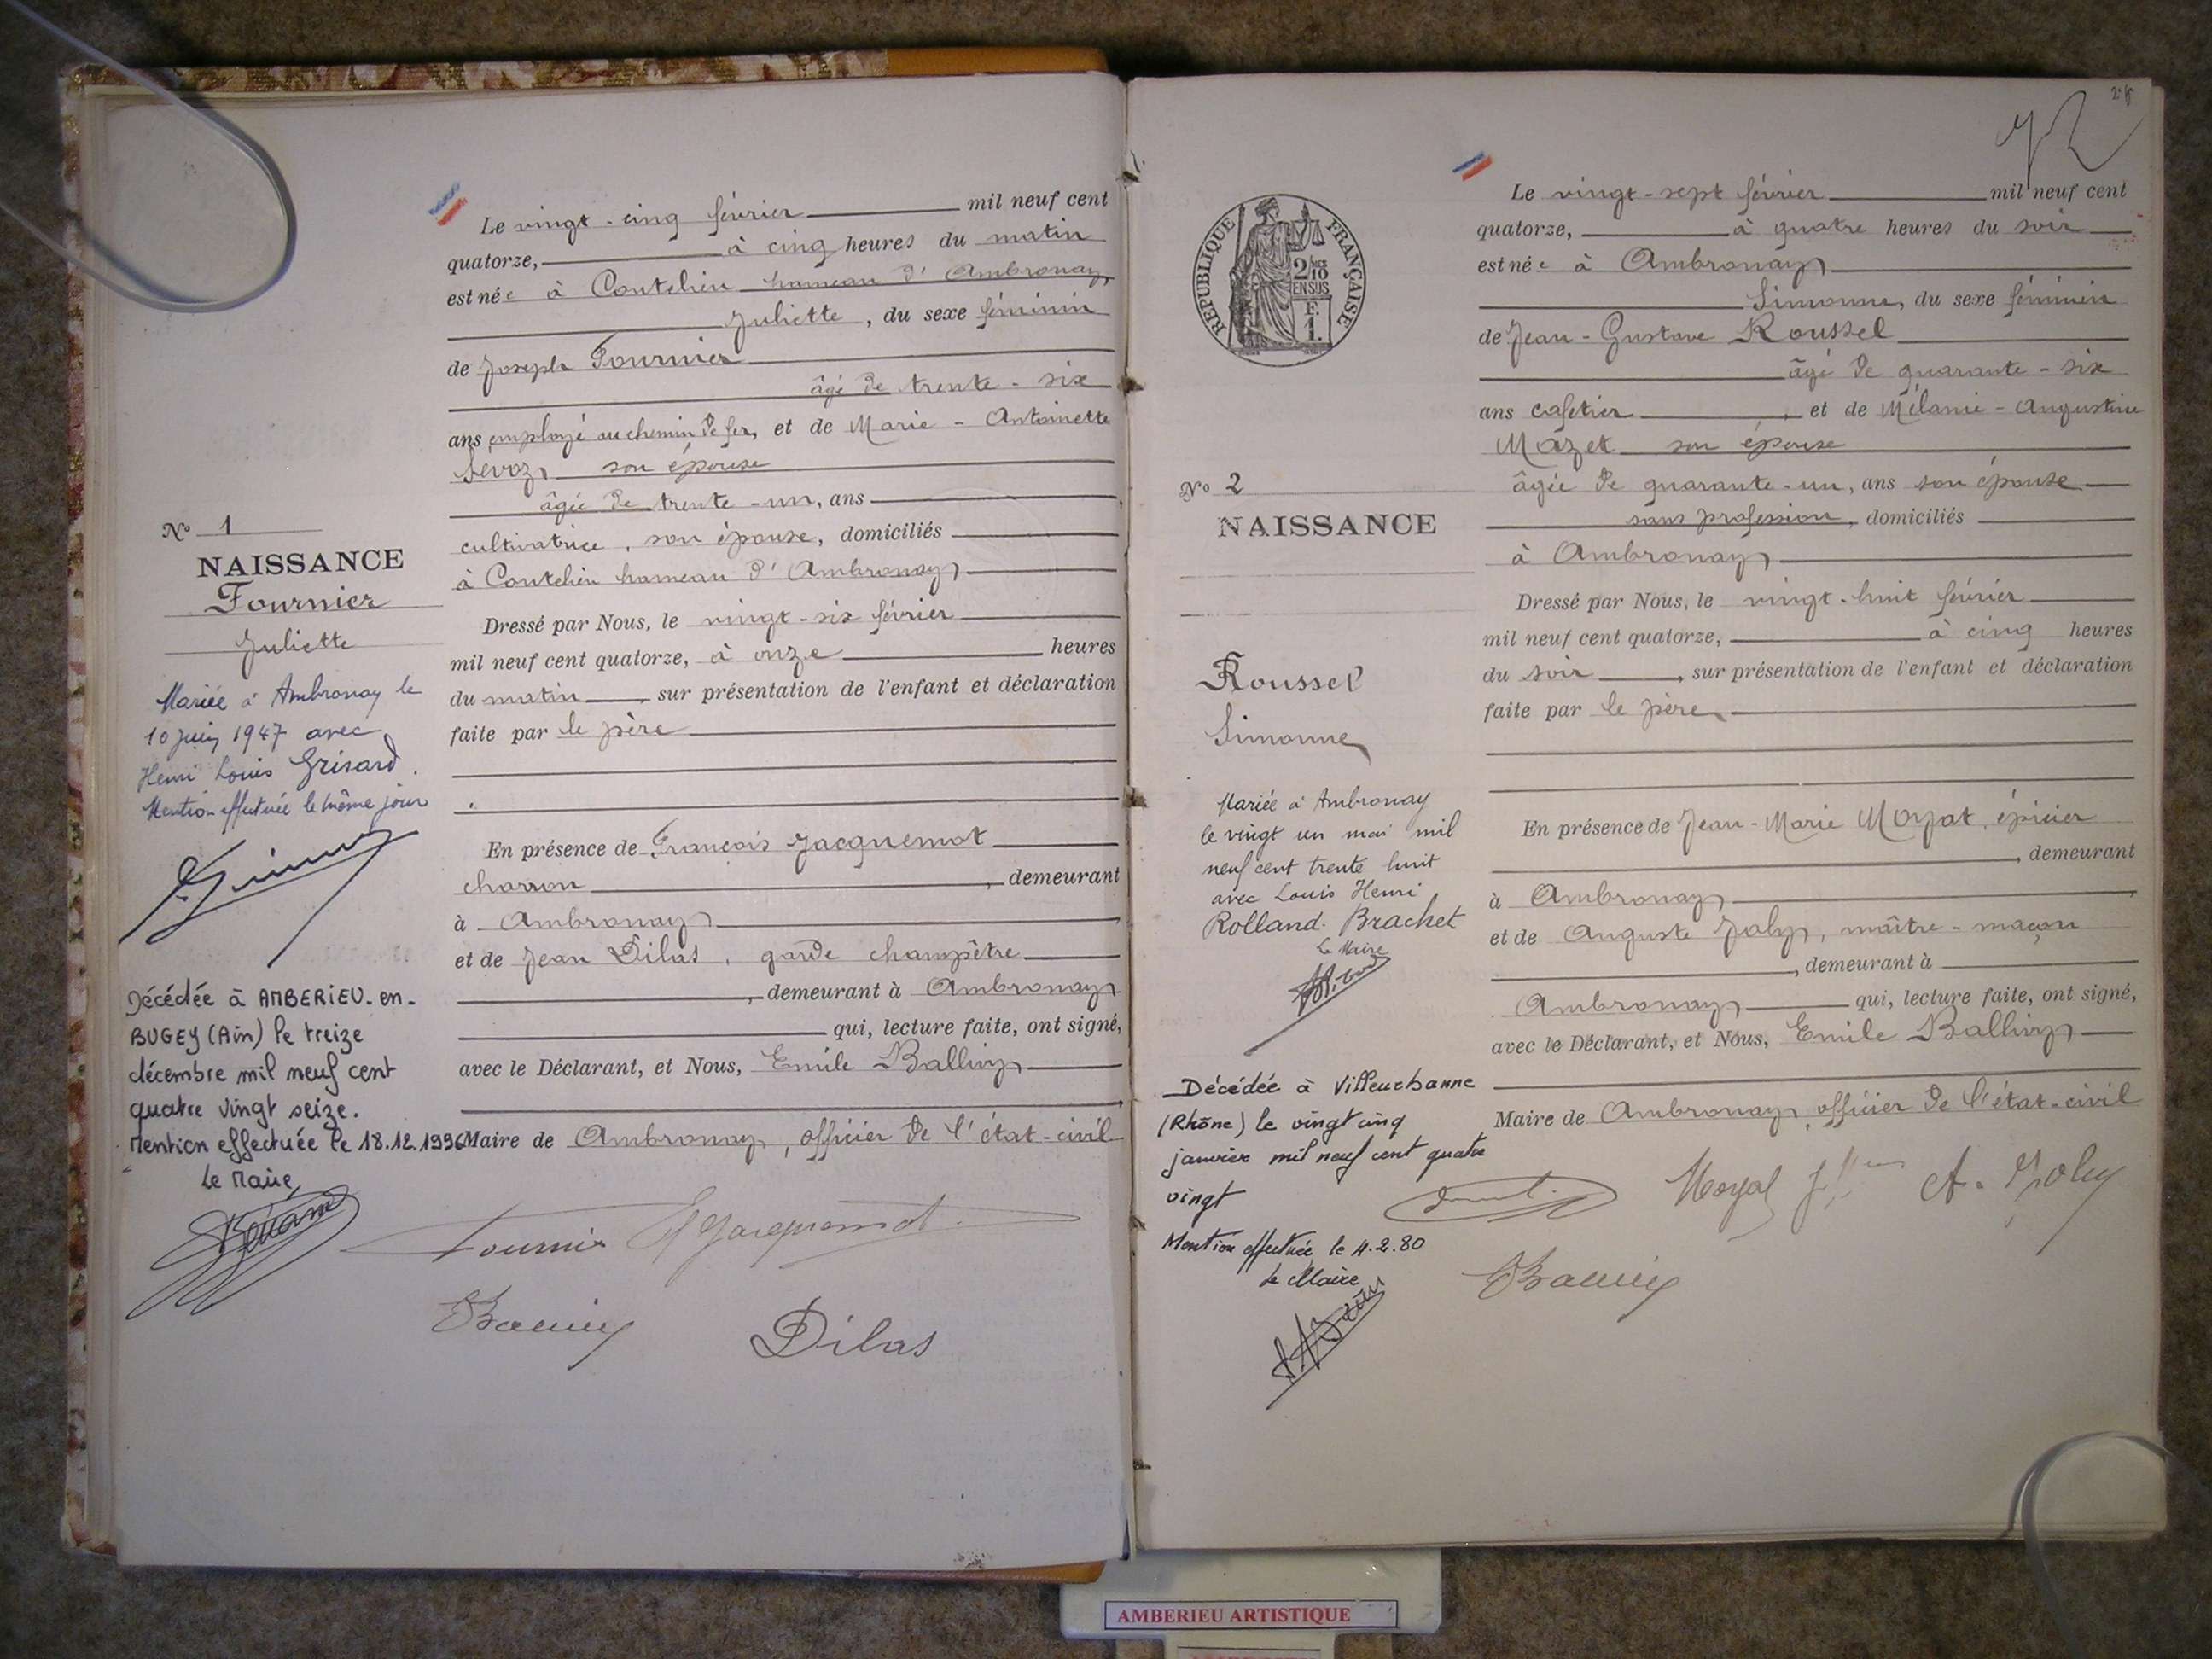 Le vingt-cinq février mil neuf cent
quatorze, à cinq heures du matin
est née à Coutelieu hameau d'Ambronay
Juliette, du sexe féminin
de Joseph Fournier
âgé de trente-six
ans employé au chemin de fer, et de Marie-Antoinette
son épouse
âgée de trente-un, ans
cultivatrice, son épouse, domiciliés
à Coutelieu hameau d'Ambronay
Dressé par Nous, le vingt-six février
mil neuf cent quatorze, à onze heures
du matin, sur présentation de l'enfant et déclaration
faite par le père
En présence de François Jacquemot
charron, demeurant
à Ambronay
et de Jean Dilas, garde champêtre
, demeurant à Ambronay
qui, lecture faite, ont signé,
avec le Déclarant, et Nous, Emile Ballivy
Maire de Ambronay, officier de l'état-civil
Fournier Jacquemot
Dilas
No 1
NAISSANCE
Fournier
Juliette
Mariée à Ambronay le
10 juin 1947 avec
Henri Louis Grisard.
Mention effectuée le même jour
Décédée à AMBERIEU-en-
BUGEY (Ain) le treize
décembre mil neuf cent
quatre vingt seize.
Mention effectuée le 18.12.1996
Le Maire,
RÉPUBLIQUE FRANÇAISE
2/10
EN SUS
F.
1.
Le vingt-sept février mil neuf cent
quatorze, à quatre heures du soir
est née à Ambronay
Simonne, du sexe féminin
de Jean-Gustave Roussel
âgé de quarante-six
ans cafetier, et de Mélanie-Augustine
Mazet son épouse
âgée de quarante-un, ans son épouse
sans profession, domiciliés
à Ambronay
Dressé par Nous, le vingt-huit février
mil neuf cent quatorze, à cinq heures
du soir, sur présentation de l'enfant et déclaration
faite par le père
En présence de Jean-Marie épicier
, demeurant
à Ambronay
et de Auguste Joly, maître-maçon
, demeurant à
Ambronay qui, lecture faite, ont signé,
avec le Déclarant, et Nous, Emile Ballivy
Maire de Ambronay, officier de l'état-civil
A. Joly
No 2
NAISSANCE
Roussel
Simonne
Mariée à Ambronay
le vingt un mai mil
neuf cent trente huit
avec Louis Henri
Rolland-Brachet
Le Maire
Décédée à Villeurbanne
(Rhône) le vingt cinq
janvier mil neuf cent quatre
vingt
Mention effectuée le 4.2.80
Le Maire
AMBERIEU ARTISTIQUE